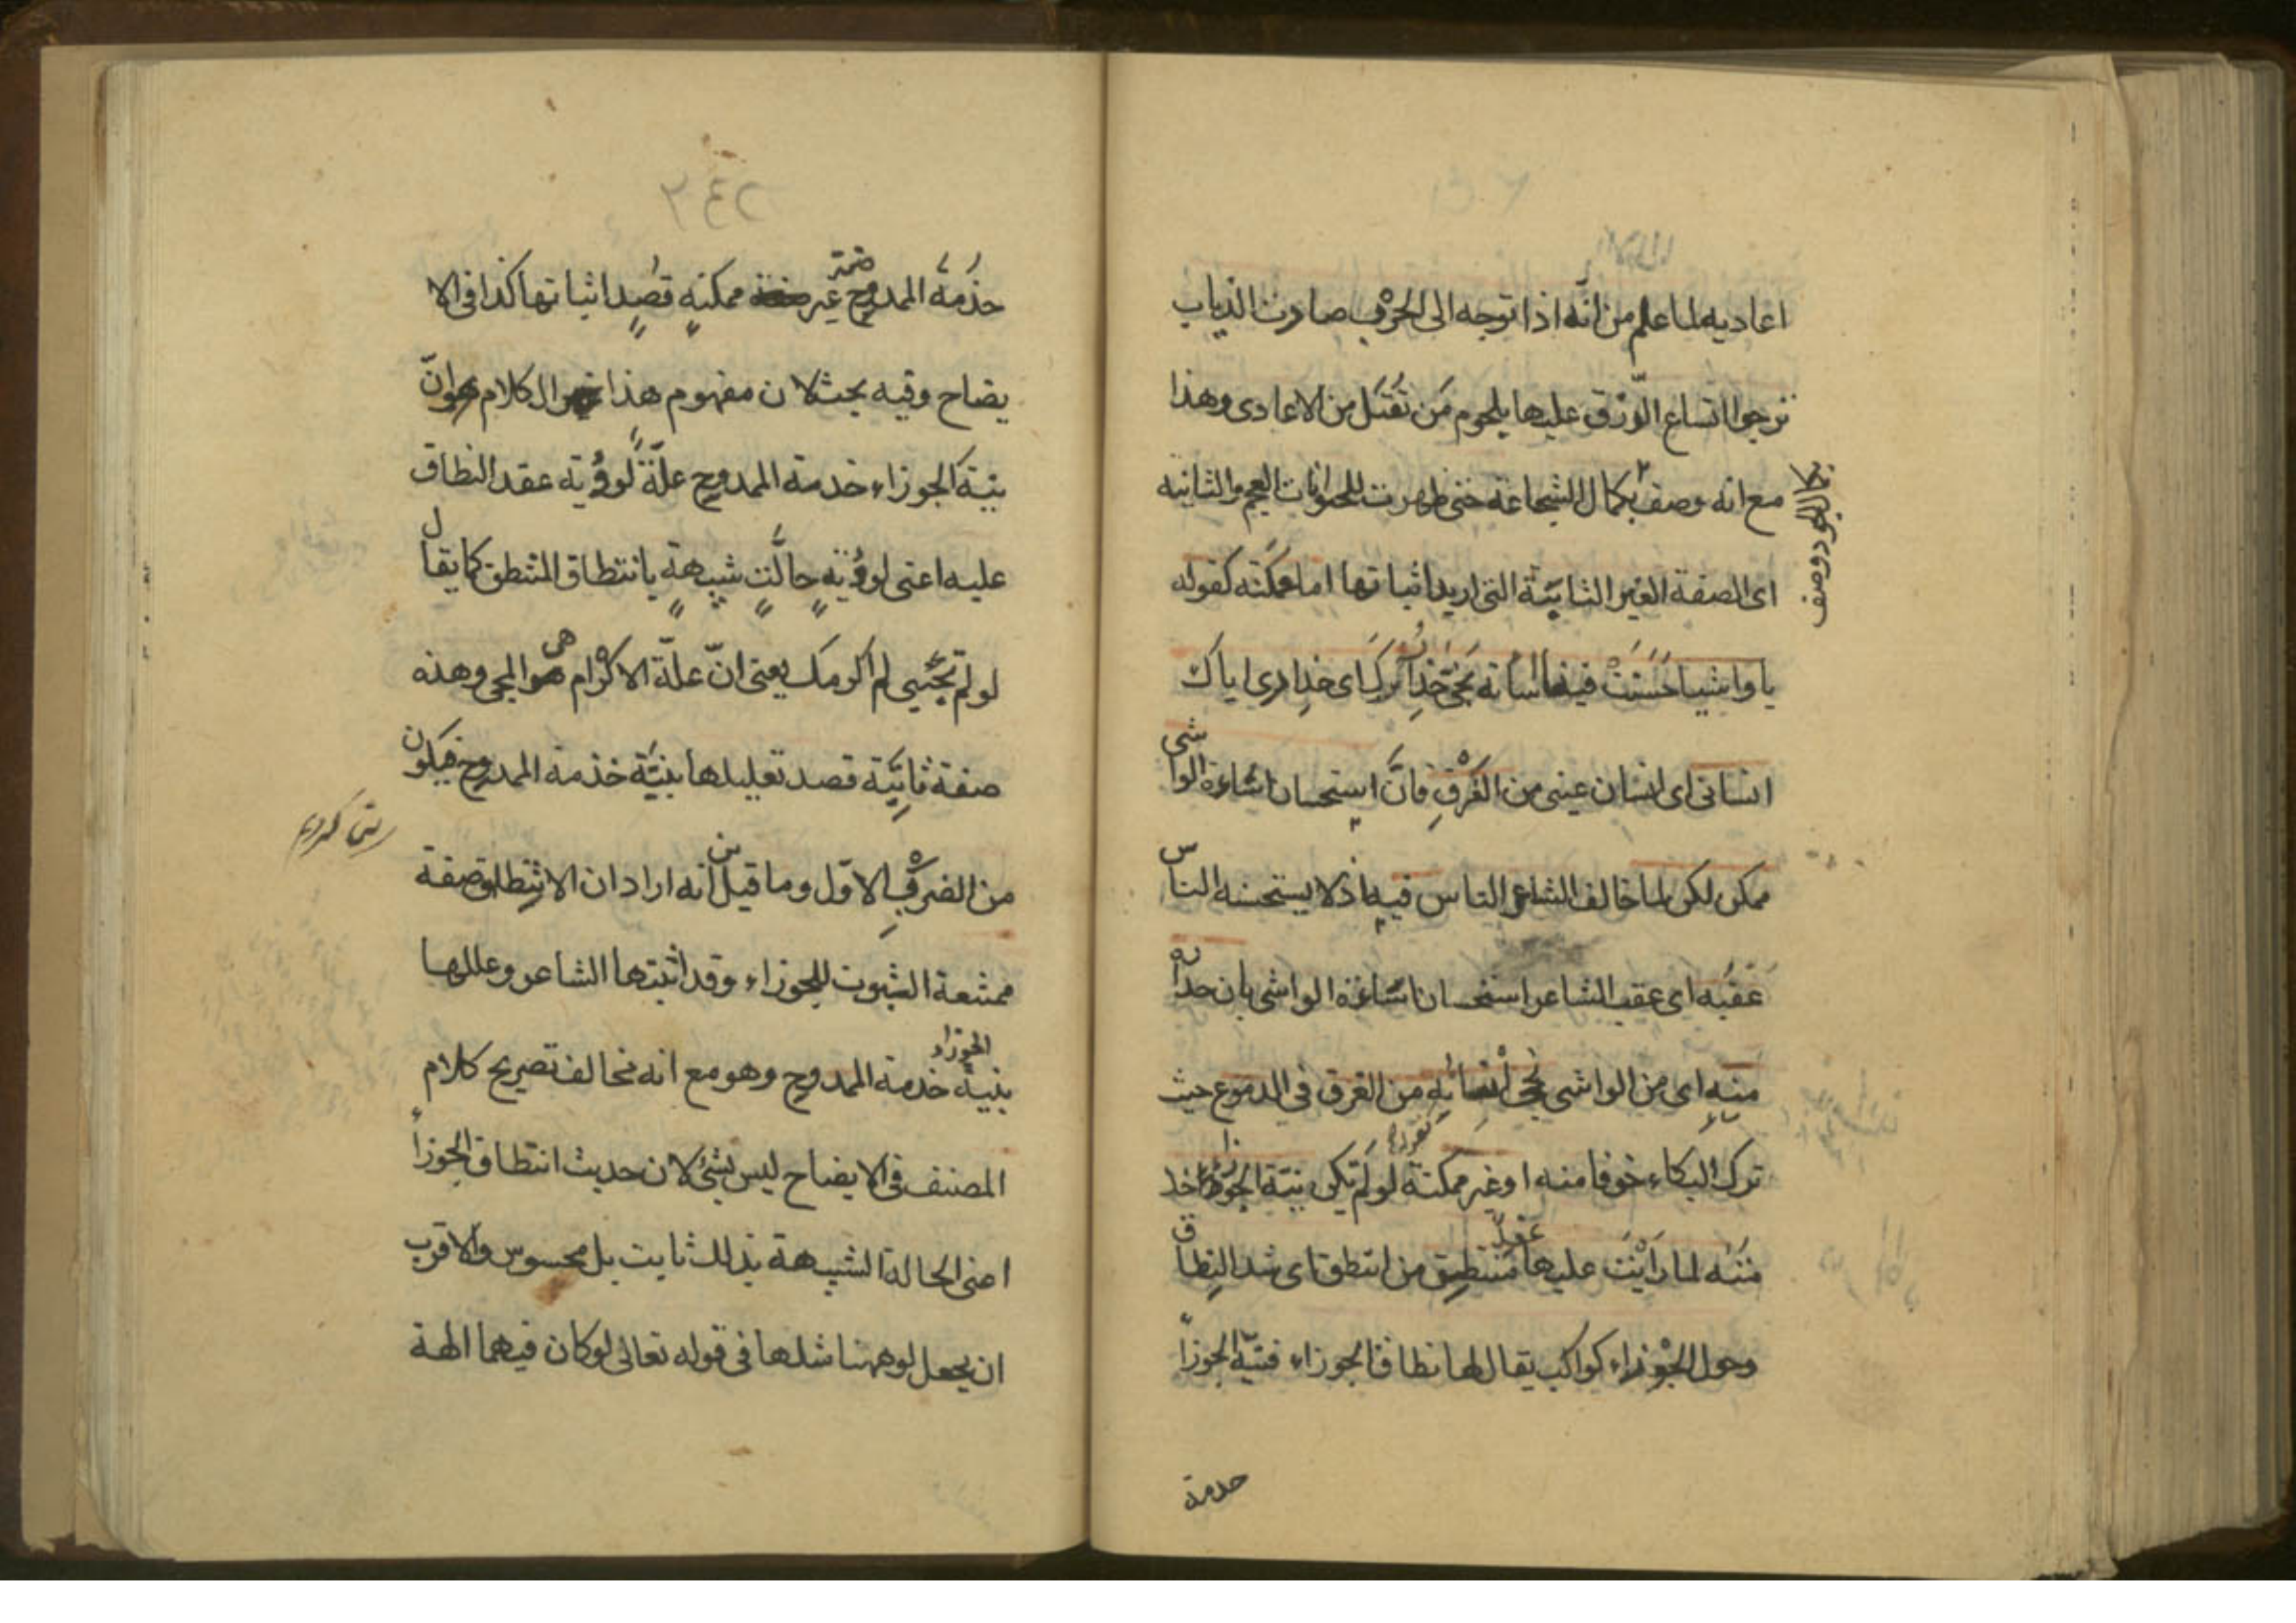 اعاديه لما علم من انّه اذا توجه الى الحرب صارت الذياب
ترجوا اتساع الرّزق عليها بلحوم مَن تُقتَل من الاعادى وهذا
مع انه وصف بكمال الشجاعة حتى ظهرت للحيوانات العجم والثانيه
بكمال الجود وصف
اى الصفة الغير الثابتة التى اريد اثباتها اما ممكنه كقوله
يا واشيا حَسُنَتْ فينا اسائته نجّى حِذارُك اى حِذارى اياك
انسانى اى انسان عينى من الغَرْقِ فانّ استحسان اسائة الواشى
ممكن لكن لما خالف الشاعر الناس فيه اذ لا يستحسنه الناس
عقبه اى عقب الشاعر استحسان اسائة الواشى بان حذاره
منه اى من الواشى نجى انسانه من الغرق فى الدموع حيث
ترك البكاء خوفا منه او غير ممكنة لو لم تكن نيّة الجوزاء خد
مته لما رأيْتَ عليها عقد منتطِق من انتطق اى شد النِطاق
وحول الجوْزاء كواكب يقال لها نطاق الجوزاء فنيّة الجوزاء
خدمة
٢٤٢
خدمةُ الممدوح صفة غير ممكنةٍ قُصِد اثباتها كذا فى الا
يضاح وفيه بحث لان مفهوم هذا الكلام هو انّ
نيّة الجوزاء خدمة الممدوح علّةٌ لرؤية عقد النطاق
عليه اعنى لرؤيةِ حالةٍ شبيهةٍ بانتطاق المنتطق كما يقال
لو لم تجئنى لم اكرمك يعنى انّ علّة الاكرام هى المجئ وهذه
صفة ثابتة قصد تعليلها بنيّة خدمة الممدوح فيكون
من الضرْبِ الاوّل وما قيل من انه اراد ان الانتطاق صفة
ممتنعة الثبوت للجوزاء وقد اثبتها الشاعر وعللها
بنية الجوزاء خدمة الممدوح وهو مع انه مخالف تصريح كلام
المصنف فى الايضاح ليس بشئ لان حديث انتطاق الجوزاء
اعنى الحالة الشبيهة بذلك ثابت بل محسوس والاقرب
ان يجعل لو ههنا مثلها فى قوله تعالى لو كان فيهما الهة